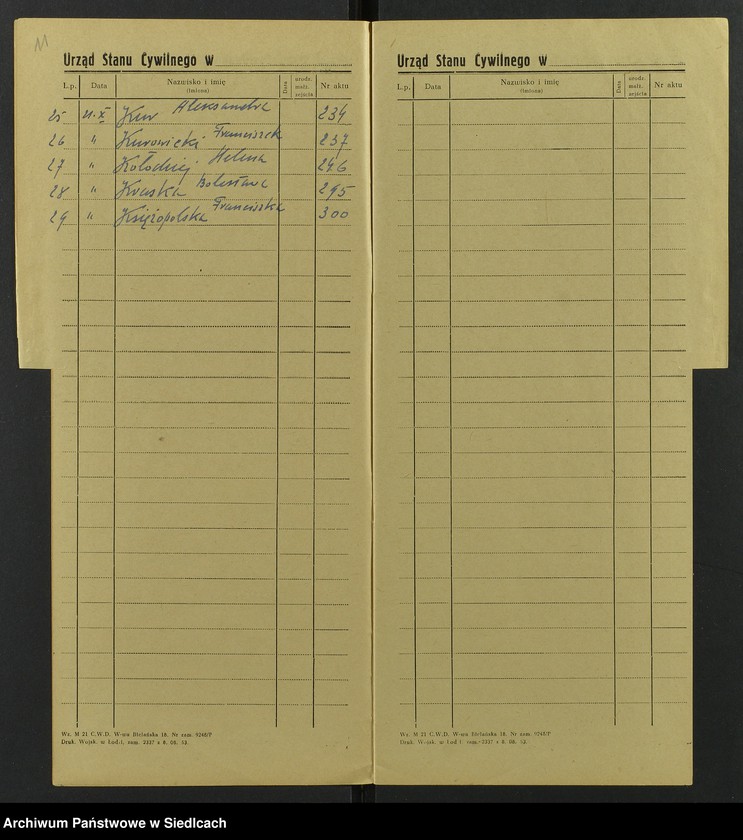 11
Urząd Stanu Cywilnego w
L.p. Data Nazwisko i imię (imiona) Data urodz. małż. zejścia Nr aktu
25 21.X Kur Aleksandra 234
26 " Kurowicki Franciszek 237
27 " Kołodziej Helena 246
28 " Kraska Bolesława 295
29 " Księżopolska Franciszka 300
Wz. M 21 C.W.D. W-wa Bielańska 18. Nr zam. 9248/F
Druk. Wojsk. w Łodzi. zam. 2337 z 8. 08. 53.
Urząd Stanu Cywilnego w
L.p. Data Nazwisko i imię (imiona) Data urodz. małż. zejścia Nr aktu
Wz. M 21 C.W.D. W-wa Bielańska 18. Nr zam. 9248/F
Druk. Wojsk. w Łodzi. zam. 2337 z 8. 08. 53.
Archiwum Państwowe w Siedlcach